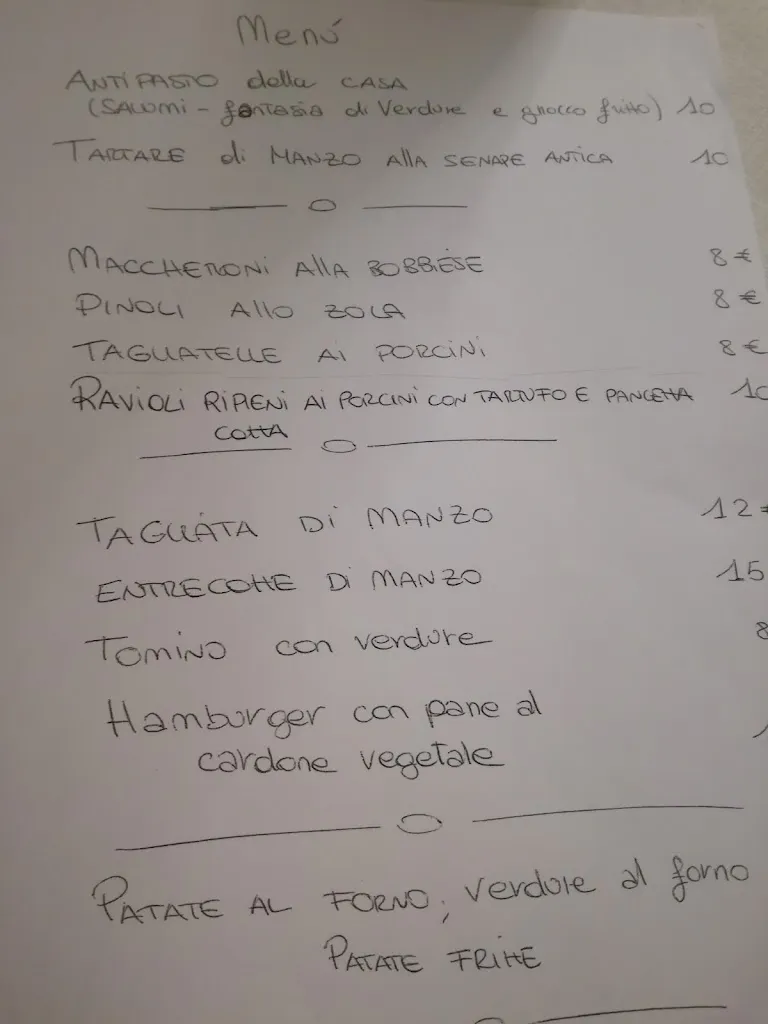 Menú
ANTIPASTO della CASA
(SALUMI - fantasia di Verdure e gnocco fritto) 10
TARTARE di MANZO Alla SENAPE ANTICA 10
MACCHERONI Alla BOBBIESE 8 €
PINOLI Allo ZOLA 8 €
TAGLIATELLE Ai PORCINI 8 €
RAVIOLI RIPIENI Ai PORCINI CON TARTUFO E PANCETTA 10
COTTA
TAGLIATA Di MANZO 12 €
ENTRECOTTE Di MANZO 15
Tomino con verdure 8
Hamburger con pane al
cardone vegetale
PATATE AL FORNO, verdure al forno
PATATE FRITTE